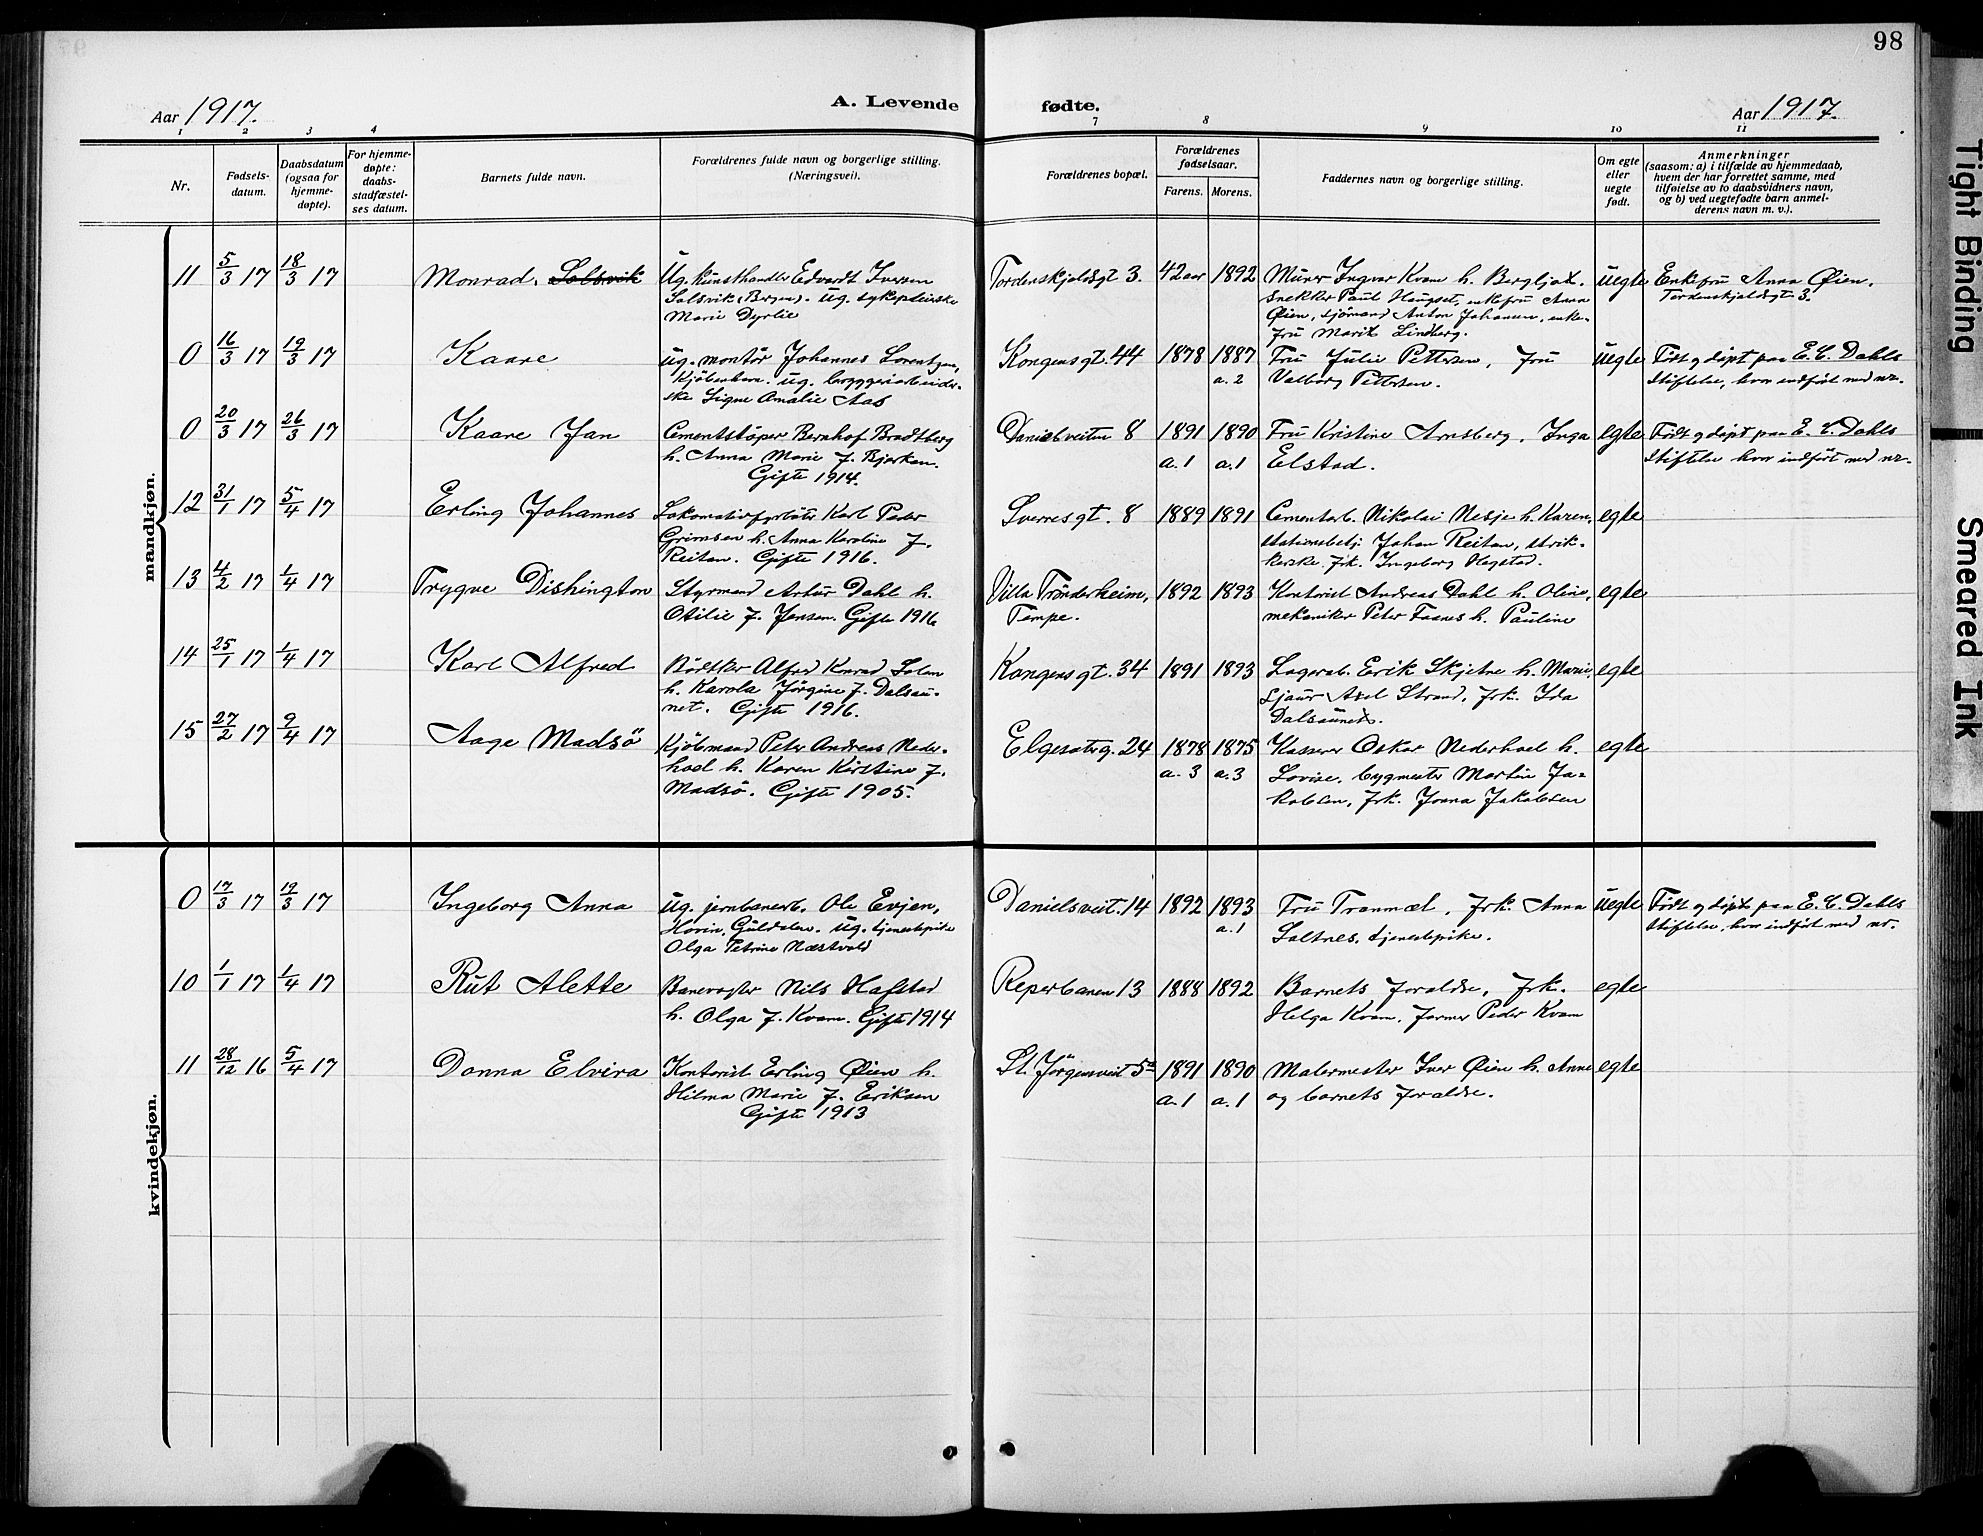 98
Aar 1917.
A. Levende
fødte.
Aar 1917.
1 2 3 4
7 8 9 10 11
Nr.
Fødsels-
datum.
Daabsdatum
(ogsaa for
hjemme-
døpte).
For hjemme-
døpte:
daabs-
stadfæstel-
ses datum.
Barnets fulde navn.
Forældrenes fulde navn og borgerlige stilling.
(Næringsvei).
Forældrenes bopæl.
Forældrenes
fødselsaar.
Farens. Morens.
Faddernes navn og borgerlige stilling.
Om egte
eller
uegte
født.
Anmerkninger
(saasom: a) i tilfælde av hjemmedaab,
hvem der har forrettet samme, med
tilføielse av to daabsvidners navn,
og b) ved uegtefødte barn anmel-
derens navn m. v.).
mandkjøn.
11 5/3 17 18/3 17 Monrad. Solsvik
Ug. kunsthandler Edvardt Iversen
Solsvik (Bergen). Ug. sykepleierske
Marie Dyrlie
Tordenskjoldsgt 3. 42 aar 1892
Murer Ingvar Kvam h. Bergljot.
Snekker Paul Haugset, enkefru Anna
Øien, sjömand Anton Johansen, enke-
fru Marit Lindberg.
uegte Enkefru Anna Øien,
Tordenskjoldsgt 3.
0 16/3 17 19/3 17 Kaare
Ug. montör Johannes Lorentzen,
Kjöbenhavn. Ug. bryggeriarbeider-
ske Signe Amalie Aas
Kongensgt. 44 1878 1887
a. 2
Fru Julie Pettersen, fru
Valborg Pettersen.
uegte Födt og döpt paa E. C. Dahls
Stiftelse, hvor indfört med nr.
0 20/3 17 26/3 17 Kaare Jan
Cementstöper Bernhof Bradtberg
h. Anna Marie f. Bjerken.
Gifte 1914.
Danielsveiten 8 1891 1890
a. 1 a. 1
Fru Kristine Arnsberg, Inga
Elstad.
egte Födt og döpt paa E. C. Dahls
Stiftelse hvor indfört med nr.
12 31/1 17 5/4 17 Erling Johannes
Lokomotivfyrböter Karl Peder
Grimsen h. Anna Karoline f.
Reitan. Gifte 1916.
Sverresgt. 8 1889 1891
Cementarb. Nikolai Nesje h. Karen,
stationsbetj. Johan Reitan, strik-
kerske frk. Ingeborg Hegstad.
egte
13 4/2 17 1/4 17 Trygve Dishington
Styrmand Artur Dahl h.
Otilie f. Jensen. Gifte 1916
Villa Trönderheim,
Tempe.
1892 1893
Kontorist Andreas Dahl h. Oline,
mekaniker Peter Faanes h. Pauline
egte
14 25/1 17 1/4 17 Karl Alfred
Bödtker Alfred Konrad Solem
h. Karola Jörgine f. Dalsau-
net. Gifte 1916.
Kongensgt. 34 1891 1893
Lagerarb. Erik Skjetne h. Marie,
sjauer Axel Strand, frk. Ida
Dalsaunet.
egte
15 27/2 17 9/4 17 Aage Madsö
Kjöbmand Peter Andreas Neder-
hoel h. Karen Kirstine f.
Madsö. Gifte 1905.
Elgesaterg. 24 1878 1875
a. 3 a. 3
Kasserer Oskar Nederhoel h.
Lovise, bygmester Martin Ja-
kobsen, frk. Jonna Jakobsen
egte
kvindekjøn.
0 17/3 17 19/3 17 Ingeborg Anna
Ug. jernbanearb. Ole Evjen,
Horin, Guldalen. Ug. tjenestepike
Olga Petrine Næstvold
Danielsveit. 14 1892 1893
a. 1
Fru Tranmæl, frk. Anna
Saltnes, tjenestepike.
uegte Födt og döpt paa E. C. Dahls
Stiftelse, hvor indfört med nr.
10 1/1 17 1/4 17 Rut Alette
Banevogter Nils Hafstad
h. Olga f. Kvam. Gifte 1914
Reperbanen 13 1888 1892
Barnets foraldre, frk.
Helga Kvam, farmer Peder Kvam
egte
11 28/12 16 5/4 17 Donna Elvira
Kontorist Erling Øien h.
Hilma Marie f. Eriksen
Gifte 1913
St. Jörgensveit 5a 1891 1890
a. 1 a. 1
Malermester Iver Øien h. Anne
og barnets foraldre.
egte
Tight Binding
Smeared Ink